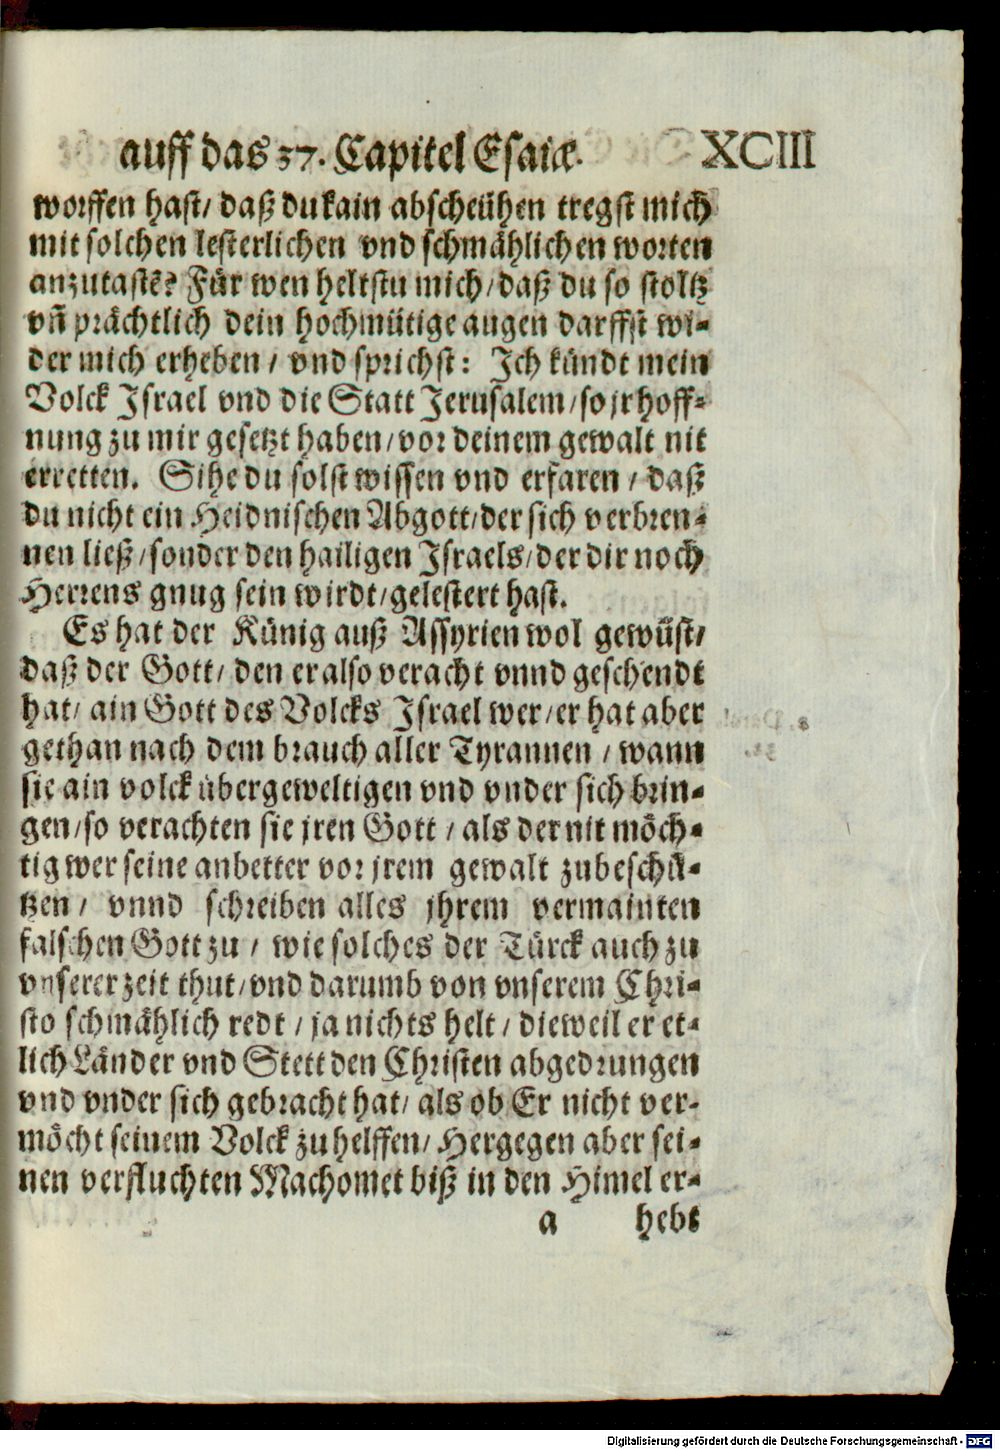 auff das 37. Capitel Esaiæ. XCIII
worffen hast/ daß du kain abscheühen tregst mich
mit solchen lesterlichen vnd schmählichen worten
anzutastẽ? Für wen heltstu mich/ daß du so stoltz
vñ prächtlich dein hochmütige augen darffst wi-
der mich erheben / vnd sprichst: Ich kündt mein
Volck Israel vnd die Statt Jerusalem/ so jr hoff-
nung zu mir gesetzt haben/ vor deinem gewalt nit
erretten. Sihe du solst wissen vnd erfaren / daß
du nicht ein Heidnischen Abgott/ der sich verbren-
nen ließ/ sonder den hailigen Israels/ der dir noch
Herrens gnug sein wirdt/ gelestert hast.
Es hat der Künig auß Assyrien wol gewüst/
daß der Gott/ den er also veracht vnnd geschendt
hat/ ain Gott des Volcks Israel wer/ er hat aber
gethan nach dem brauch aller Tyrannen / wann
sie ain volck übergeweltigen vnd vnder sich brin-
gen/ so verachten sie jren Gott / als der nit möch-
tig wer seine anbetter vor jrem gewalt zubeschü-
tzen / vnnd schreiben alles jhrem vermainten
falschen Gott zu / wie solches der Türck auch zu
vnserer zeit thut/ vnd darumb von vnserem Chri-
sto schmählich redt / ja nichts helt / dieweil er et-
lich Länder vnd Stett den Christen abgedrungen
vnd vnder sich gebracht hat/ als ob Er nicht ver-
möcht seinem Volck zu helffen/ Hergegen aber sei-
nen verfluchten Machomet biß in den Himel er-
a hebt
Digitalisierung gefördert durch die Deutsche Forschungsgemeinschaft - DFG